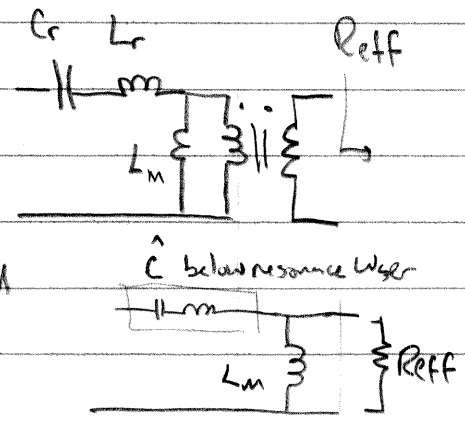 Cr Lr Reff
LM
Ĉ below resonance wser
LM Reff